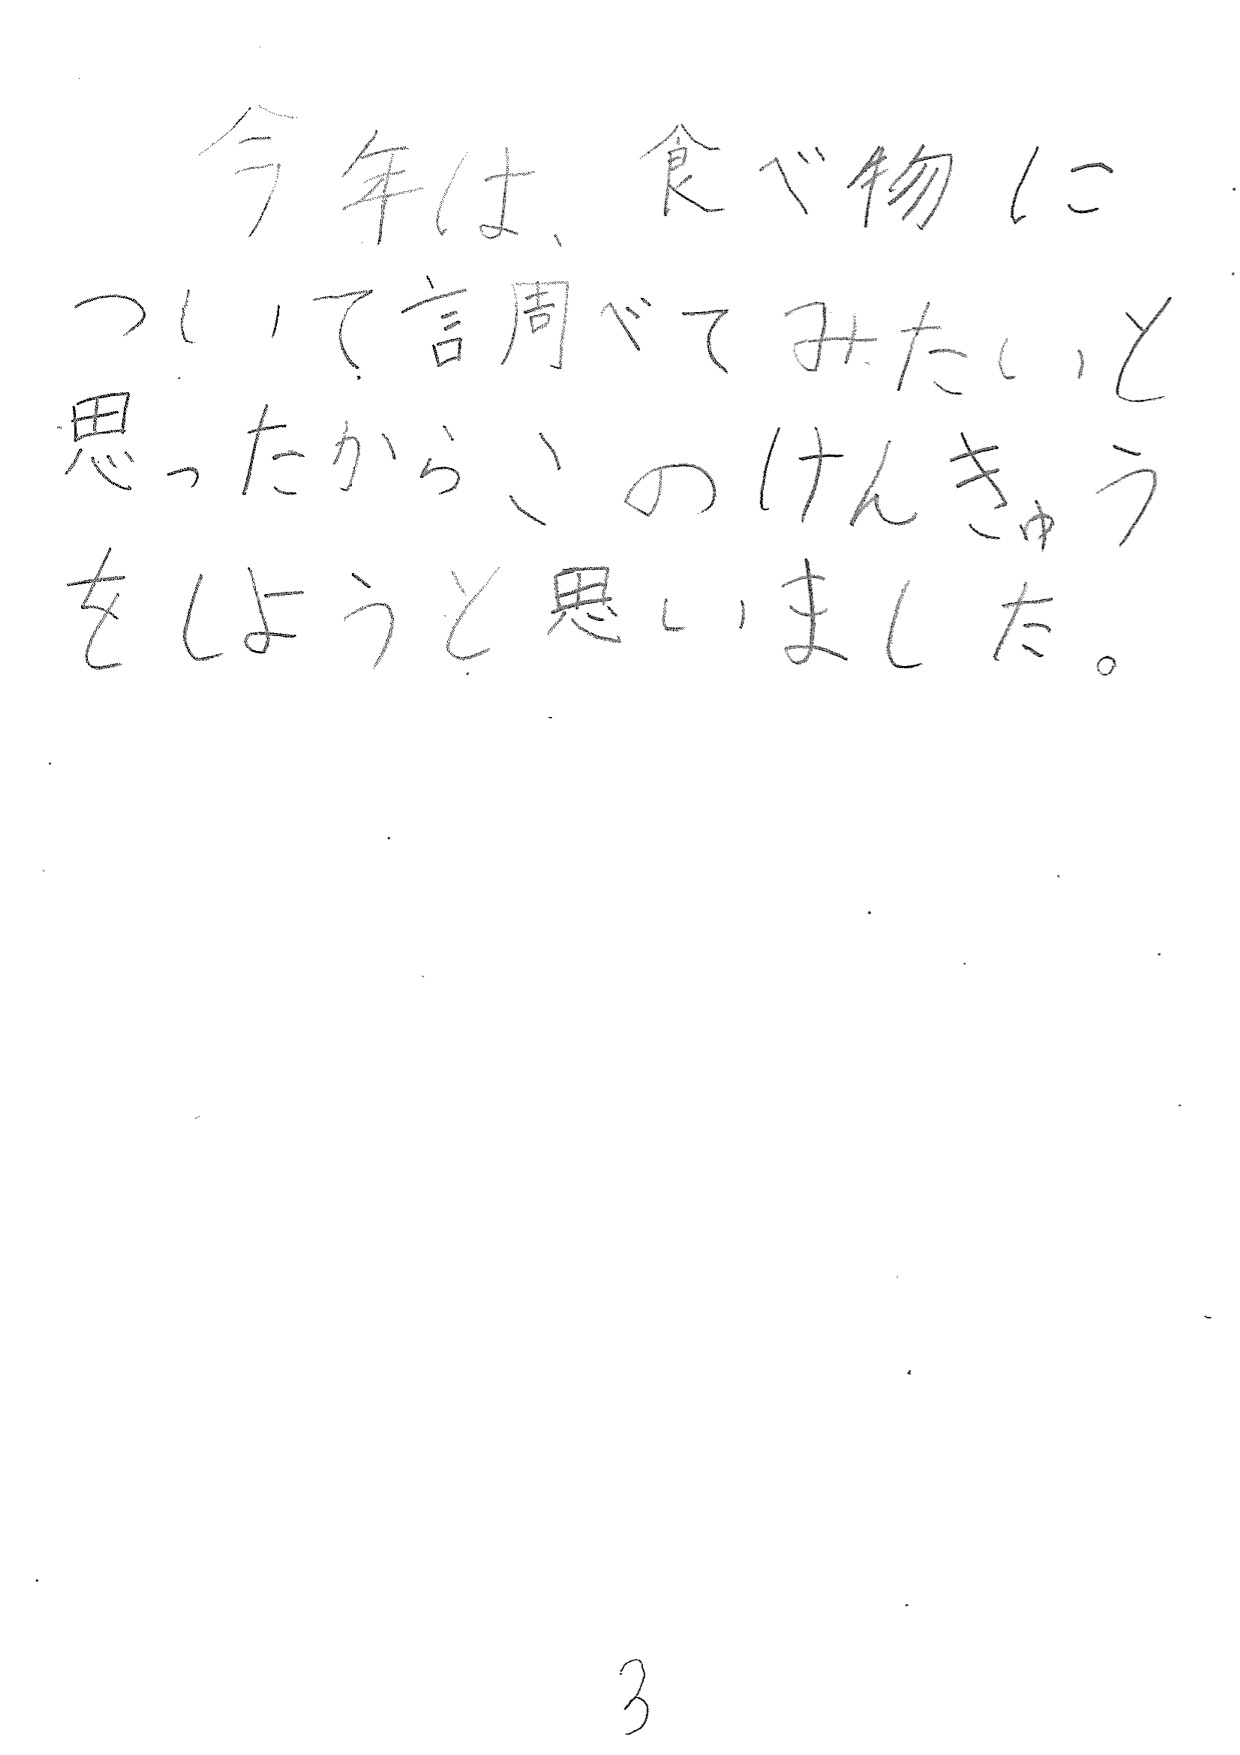 今年は、食べ物に
ついて調べてみたいと
思ったからこのけんきゅう
をしようと思いました。
3